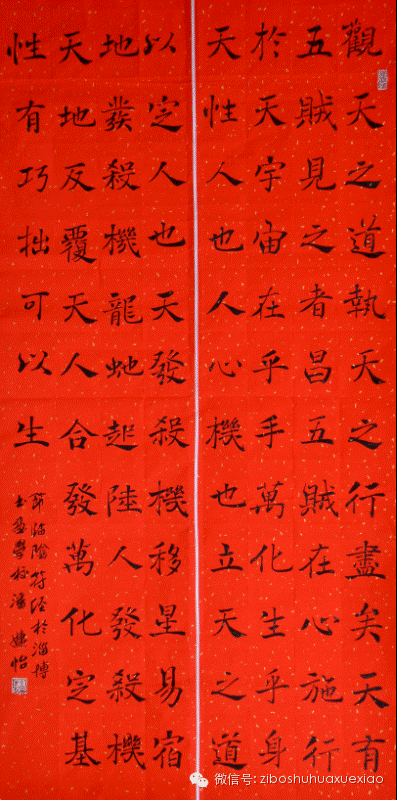 觀天之道執天之行盡矣天有
五賊見之者昌五賊在心施行
於天宇宙在乎手萬化生乎身
天性人也人心機也立天之道
以定人也天發殺機移星易宿
地發殺機龍虵起陸人發殺機
天地反覆天人合發萬化定基
性有巧拙可以生
節臨陰符经於淄博
书画學校潘怡
微信号: ziboshuhuaxuexiao